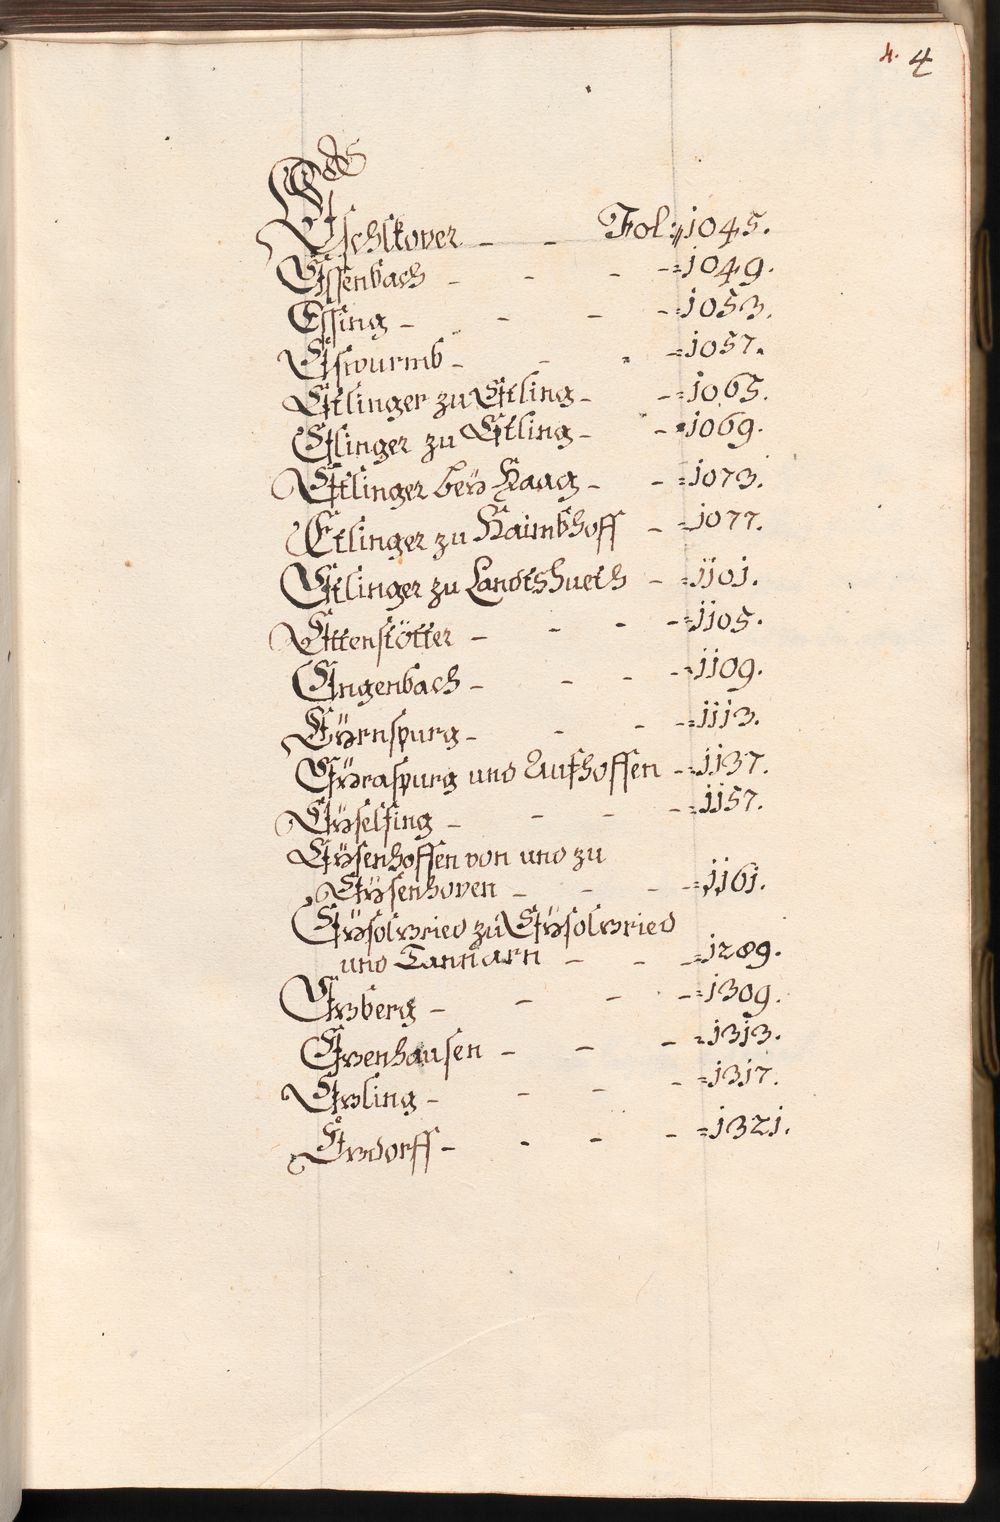 4. 4
Eschlkover - - Fol: 1045.
Essenbach - - - -= 1049.
Essing - - - -= 1053.
Eswurmb - - - -= 1057.
Ettlinger zu Ettling - -= 1065.
Etlinger zu Etling - -= 1069.
Ettlinger beÿ Haag - -= 1073.
Etlinger zu Haimbhoff - = 1077.
Ettlinger zu Landtshueth - = 1101.
Ettenstötter - - - -= 1105.
Eugenbach - - - -= 1109.
Eÿrnspurg - - - -= 1113.
Eÿraspurg und Aufhoffen -= 1137.
Eÿselfing - - - -= 1157.
Eÿsenhoffen von und zu
Eÿsenhoven - - - -= 1161.
Eÿsolzried zu Eÿsolzried
und Tannarn - - -= 1289.
Ezberg - - - -= 1309.
Ezenhausen - - -= 1313.
Ezling - - - -= 1317.
Ezdorff - - - - = 1321.